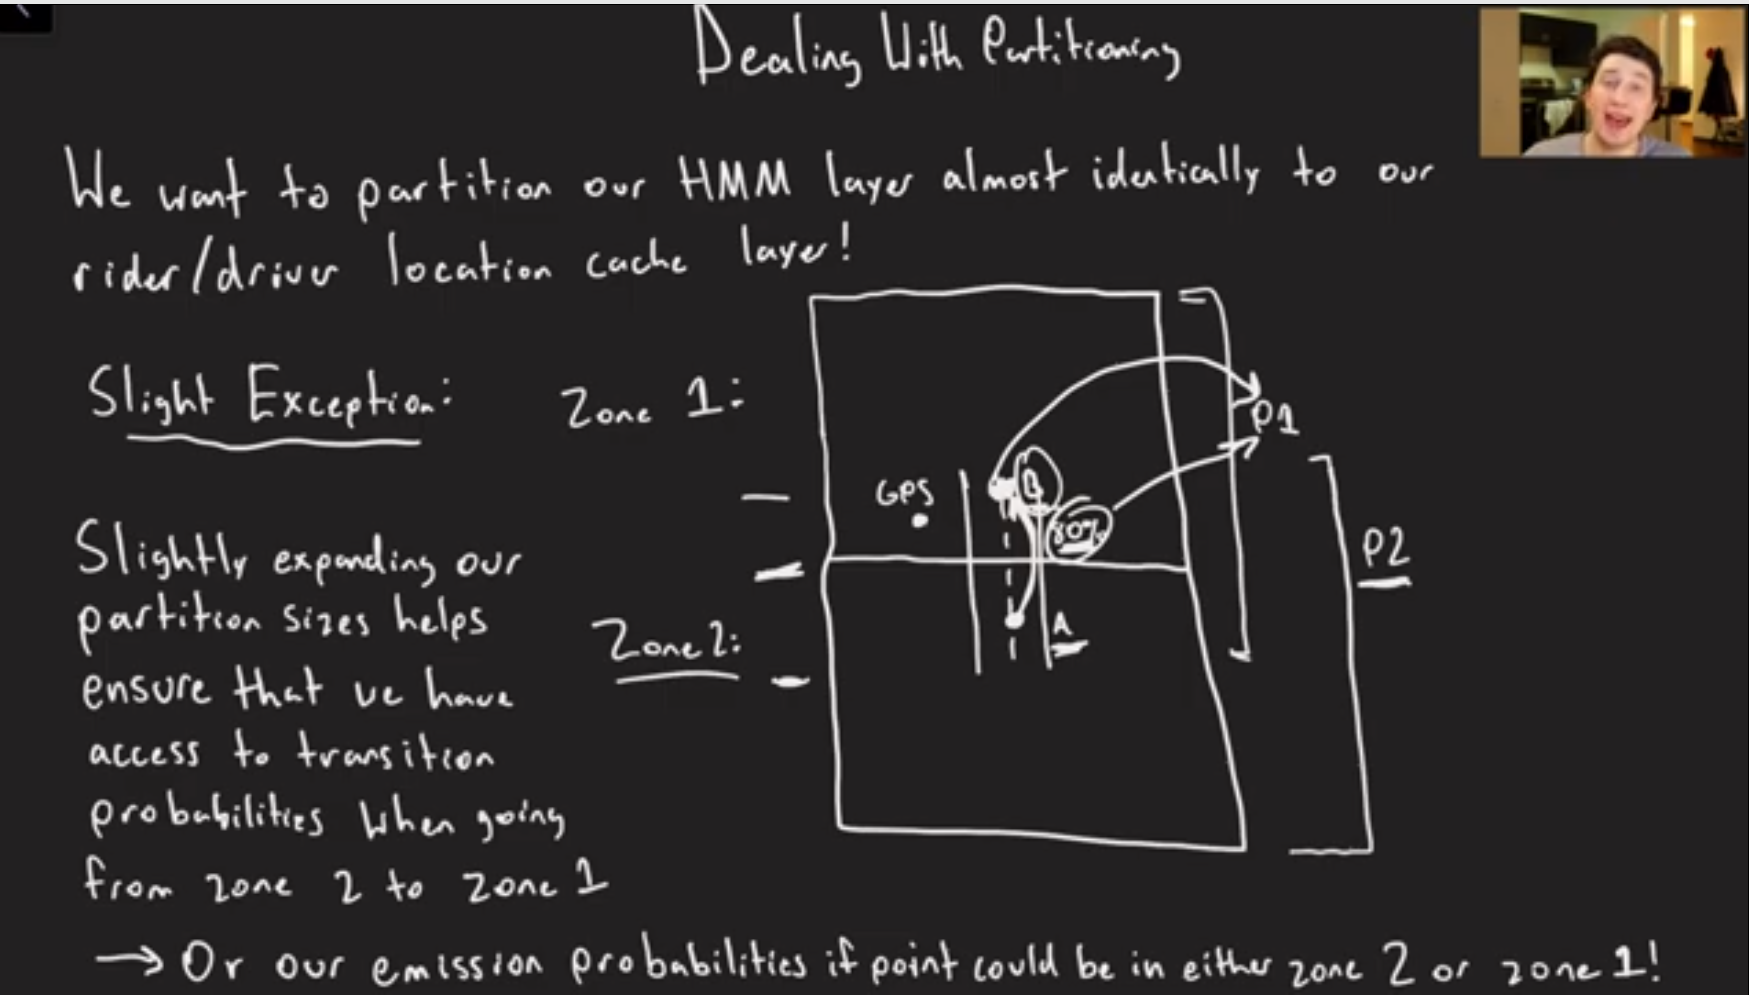 Dealing With Partitioning
We want to partition our HMM layer almost identically to our
rider/driver location cache layer!
Slight Exception:
Zone 1:
P1
GPS
B
80%
P2
Slightly expanding our
partition sizes helps
ensure that we have
access to transition
probabilities when going
from zone 2 to zone 1
Zone 2:
A
→ Or our emission probabilities if point could be in either zone 2 or zone 1!